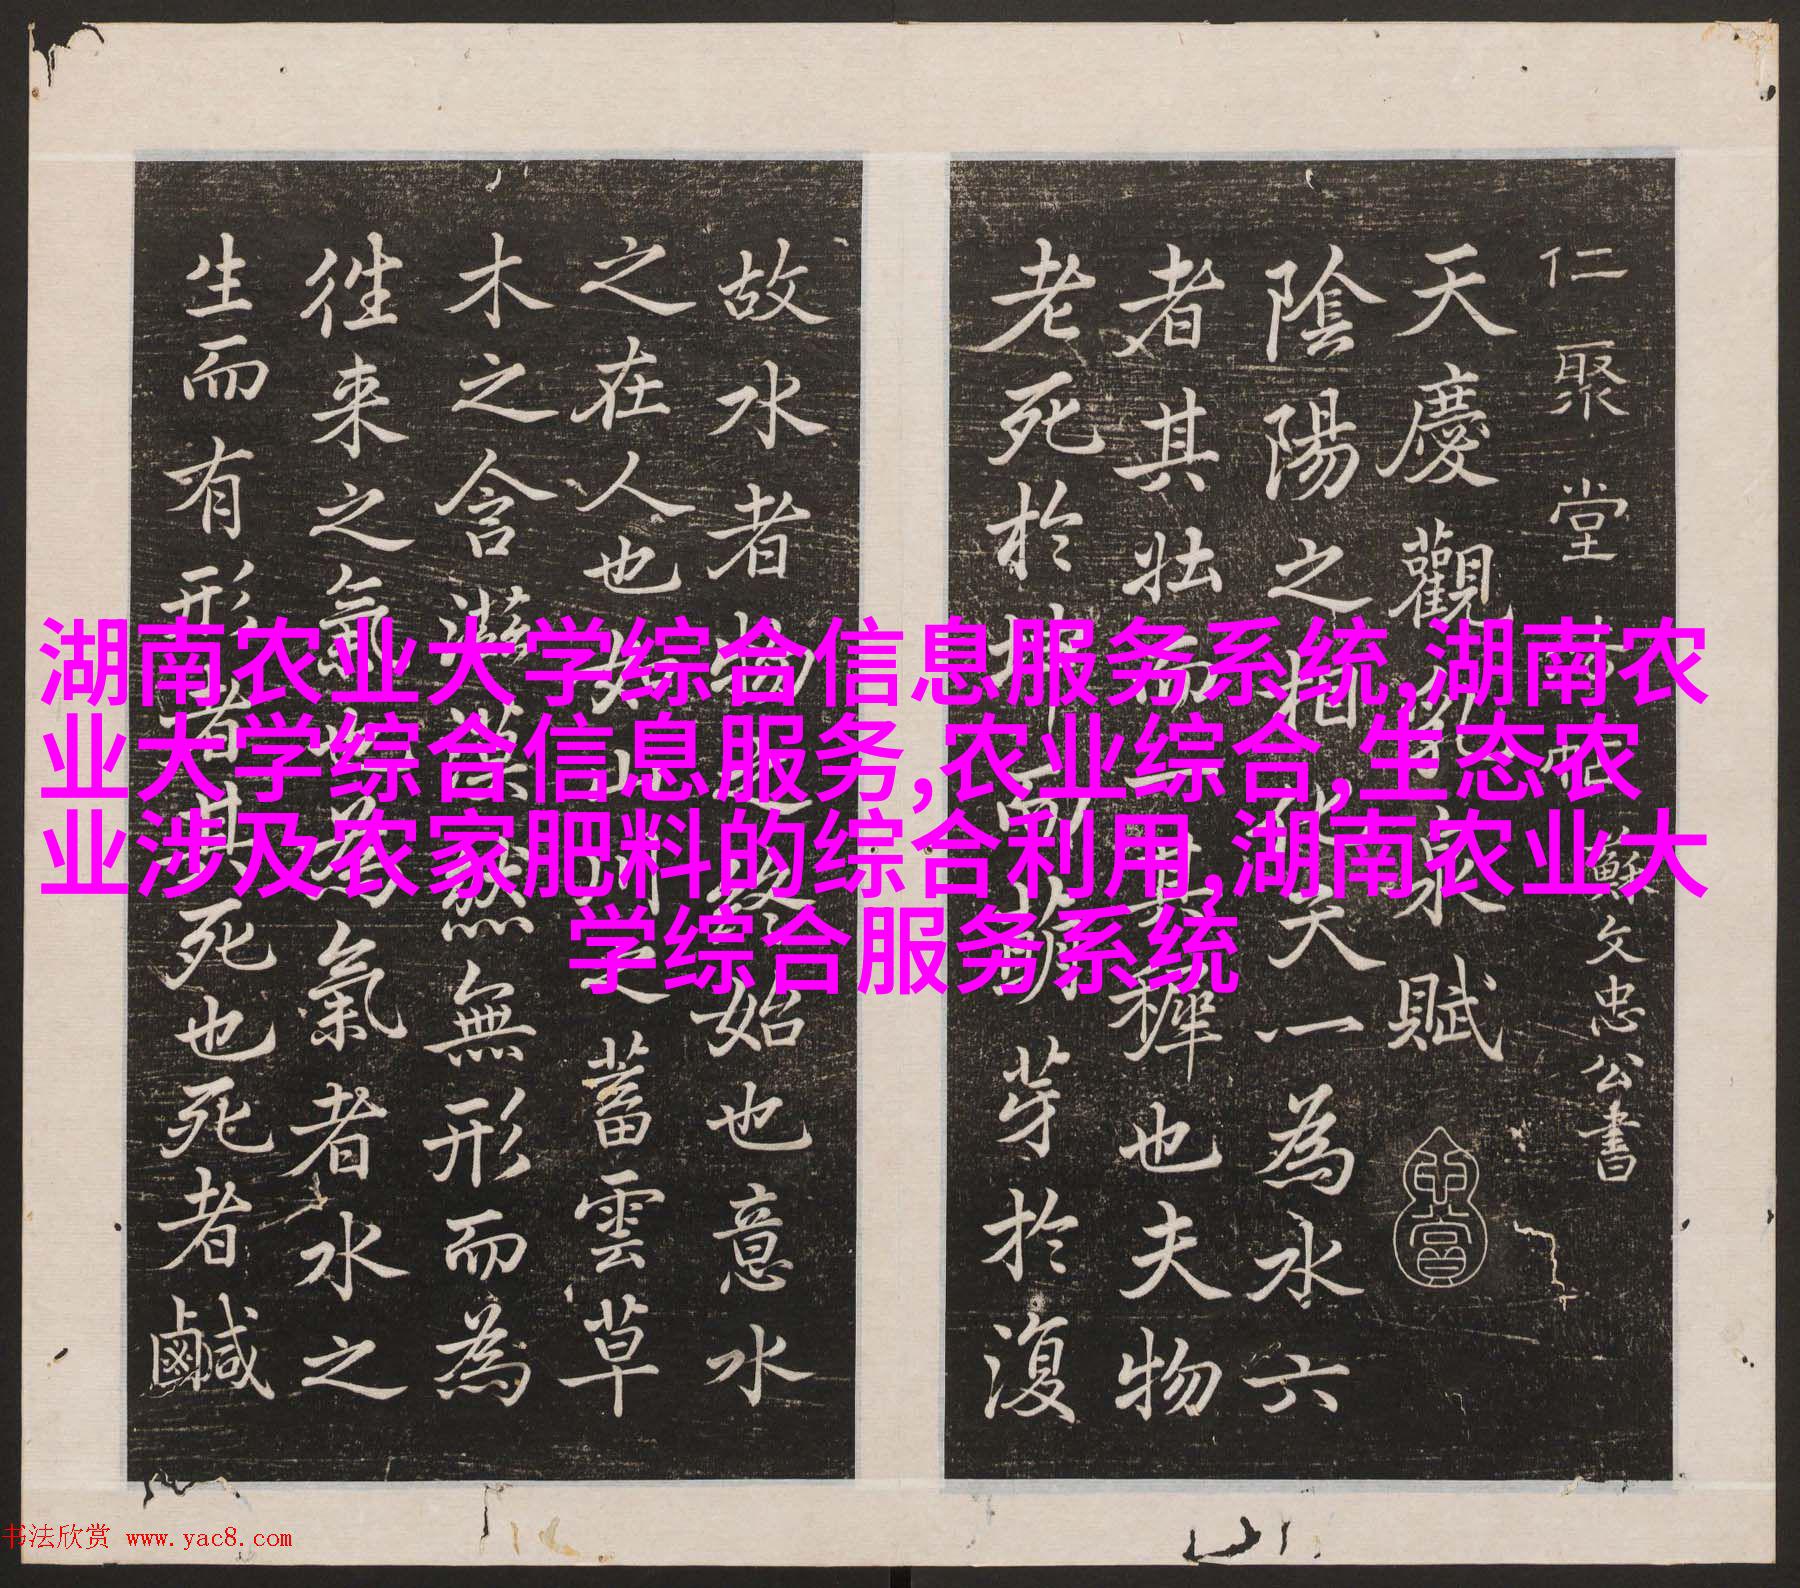 湖南农业大学综合信息服务系统,湖南农
业大学综合信息服务,农业综合,生态农
业涉及农家肥料的综合利用,湖南农业大
学综合服务系统
仁聚堂 蘇文忠公書
天慶觀乳泉賦
陰陽之相化天一為水六
者其壯而一者其穉也夫物
老死於坤而萌芽於復
故水者物之終始也意水
之在人也如山川之蓄雲草
木之含滋漠然無形而為
徃来之氣也為氣者水之
生而有形者其死也死者鹹
书法欣赏 www.yac8.com